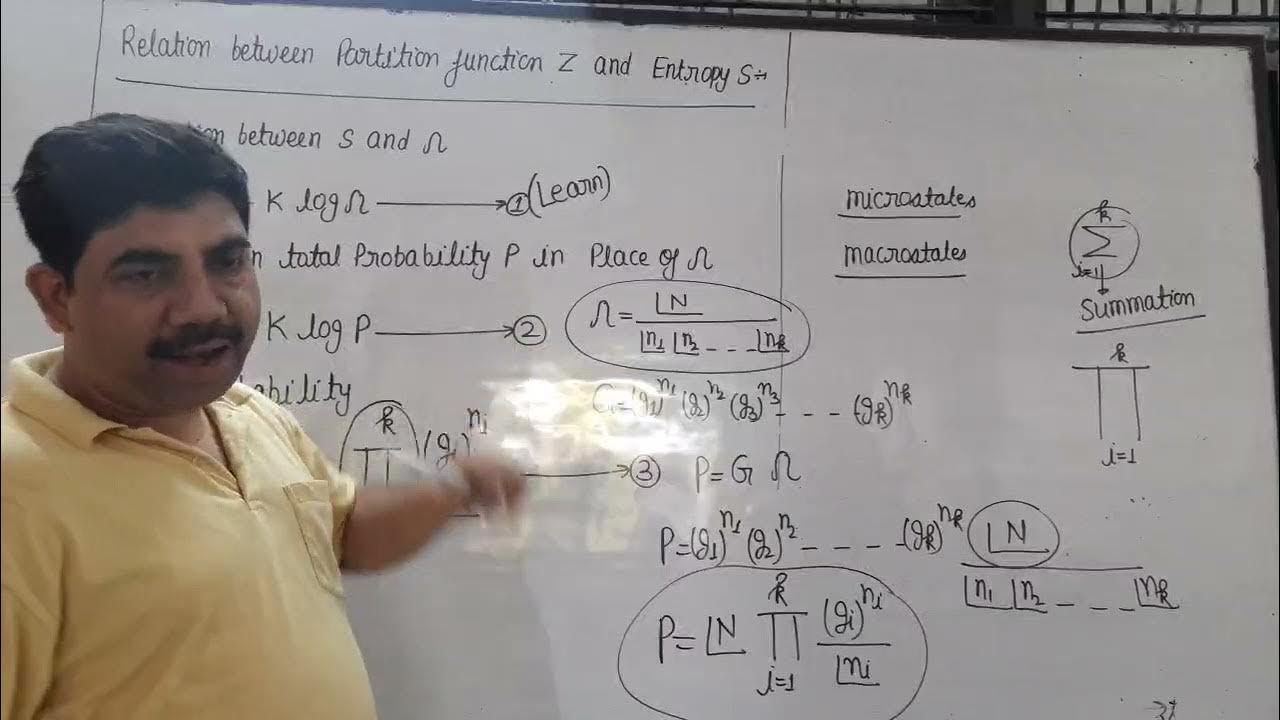 Relation between Partition function Z and Entropy S:-
between S and Ω
K log Ω → ① (Learn)
total Probability P in Place of Ω
K log P → ②
Ω = ⌊N / ⌊n₁ ⌊n₂ - - - ⌊nₖ
G = (g₁)^n₁ (g₂)^n₂ (g₃)^n₃ - - - (gₖ)^nₖ
k ∏ (gᵢ)^nᵢ → ③
P = G Ω
P = (g₁)^n₁ (g₂)^n₂ - - - - (gₖ)^nₖ ⌊N / ⌊n₁ ⌊n₂ - - - ⌊nₖ
P = ⌊N k ∏ i=1 (gᵢ)^nᵢ / ⌊nᵢ
microstates
macrostates
k Σ i=1
Summation
k ∏ i=1